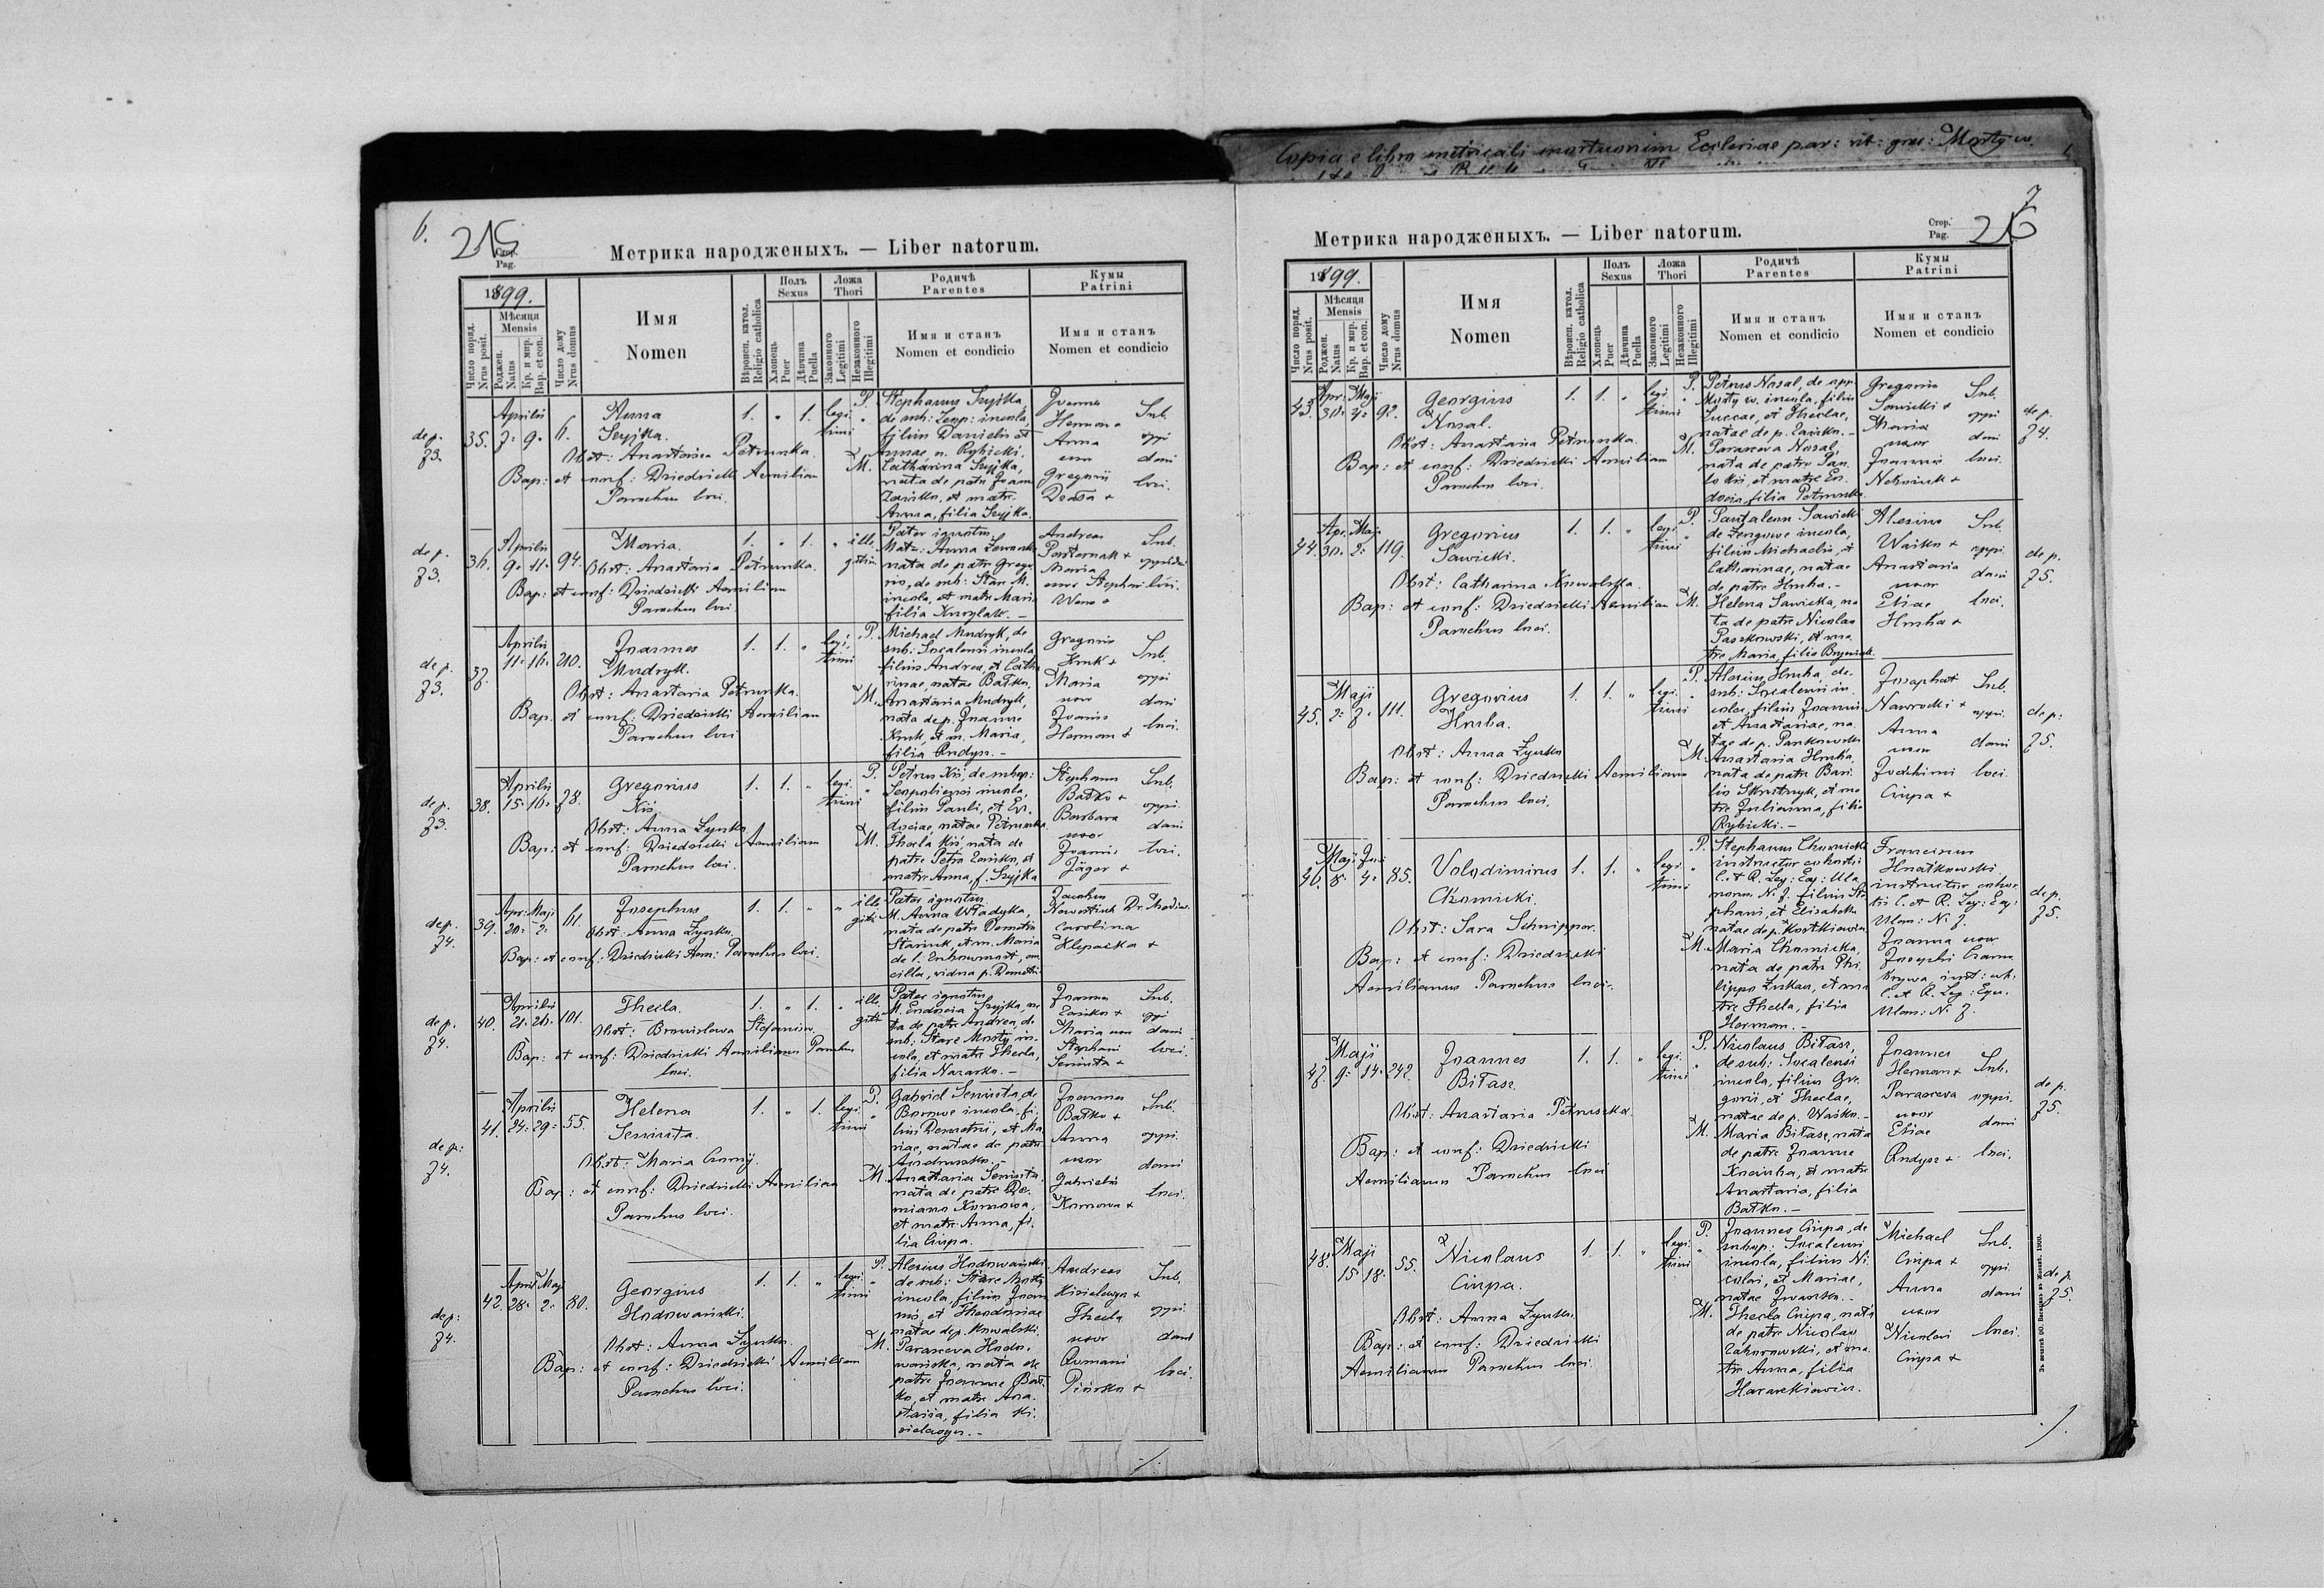 Copia e libro metricali mortuorum Ecclesiae par: rit: grae: Mosty w.
6.
215
Стор.
Pag.
Метрика народженыхъ. — Liber natorum.
1899.
Число поряд.
Nrus posit.
Мѣсяця
Mensis
Роджен.
Natus
Кр. и мир.
Bap. et con.
Число дому
Nrus domus
Имя
Nomen
Вѣроисп. катол.
Religio catholica
Полъ
Sexus
Хлопець
Puer
Дѣвчина
Puella
Ложа
Thori
Законного
Legitimi
Незаконного
Illegitimi
Родичѣ
Parentes
Имя и станъ
Nomen et condicio
Кумы
Patrini
Имя и станъ
Nomen et condicio
de p.
73.
35.
Aprilis
7. 9.
6.
Anna
Szyjka.
Obst: Anastasia Petrunka.
Bap: et conf: Dziedzicki Aemilian
Parochus loci.
1. " 1. legi
timi "
P. Stephanus Szyjka,
filius Danielis et
Annae, n. Rybicki.
M. Catharina Szyjka,
nata de patre Joan
Zański, et matre
Anna, filia Szyjka.
Joannes
Herman +
Anna
uxor
Gregorii
Sub.
oppi
dani
loci.
de p.
73.
36.
Aprilis
9. 11.
94.
Maria.
Obst: Anastasia Petrunka.
Bap: et conf: Dziedzicki Aemilian
Parochus loci.
1. " 1. " ille
gitim
Pater ignotus.
nata de patre Grego
rio, de sub: Star. M.
incola, et matre Maria
filia
Andreas
Pasternak +
Maria
uxor Stephani
Sub.
oppidani
loci.
de p.
73.
37.
Aprilis
11. 16.
210.
Joannes
Mudryk.
Obst: Anastasia Petrunka.
Bap. et conf: Dziedzicki Aemilian
Parochus loci
1. 1. " legi
timi
P. Michael Mudryk, de
sub: Socalensi incola
filius Andrea, et Catha
rinae, natae Batko,
M. Anastasia Mudryk,
nata de p. Joanne
Kruk, et m. Maria,
filia Andysz. –
Gregorius
Kruk +
Maria
uxor
Joannis
Herman +
Sub.
oppi
dani
loci.
de p.
73.
38.
Aprilis
15. 16.
78.
Gregorius
Kiś.
Obst: Anna Zynko
Bap: et conf: Dziedzicki Aemilian
Parochus loci.
1. 1. " legi
timi "
P. Petrus Kiś, de subop:
incola,
filius Pauli, et Eu
dociae, natae Petrunka
M. Thecla Kiś, nata de
patre Petro Zańko, et
matre Anna, f. Szyjka
Stephanus
Batko +
Barbara
uxor
Joannis
Jäger +
Sub.
oppi.
dani
loci.
de p.
74.
39.
Apr. Maji
20. 2.
61.
Josephus
Obst: Anna Zynko.
Bap: et conf: Dziedzicki Aem: Parochus loci.
1. 1. " " ille
giti
Pater ignotus.
M. Anna Władyka,
nata de patre Demetrio
et m. Maria
Carolina
Klepacka +
de p.
74.
40.
Aprilis
21. 26.
101.
Thecla.
Obst: Bronislawa Stefaniw
Bap: et conf: Dziedzicki Aemilianus Parochus
loci.
1. " 1. " ille
giti
Pater ignotus
M. Eudocia Szyjka, na
ta de patre Andrea, de
sub: Stare Mosty in
cola, et matre Thecla,
filia Nazarko. –
Joannes
Zańko +
Maria uxor
Stephani
Semiuta +
Sub.
oppi
dani
loci.
de p:
74.
41.
Aprilis
24. 29.
55.
Helena
Semiuta.
Obst: Maria
Bap: et conf: Dziedzicki Aemilian
Parochus loci.
1. " 1. legi
timi "
P. Gabriel Semiuta, de
incola, fi
lius Demetrii, et Ma
riae, natae de patre
M. Anastasia Semiuta,
nata de patre De
miano Komowa,
et matre Anna, fi
lia Ciupa.
Joannes
Batko +
Anna
uxor
Gabrielis
Komowa +
Sub.
oppi.
dani
loci.
de p:
74.
42.
April. Maji
28. 2.
80.
Georgius
Hodowański.
Obst: Anna Zynko.
Bap: et conf: Dziedzicki Aemilian
Parochus loci.
1. 1. " legi
timi "
P. Alexius Hodowański
de sub: Stare Mosty
incola, filius Joan
nis, et Theodosiae
natae de p. Kowalski.
M. Parasceva Hodo
wańska, nata de
patre Joanne Bat
ko, et matre Ana
stasia, filia Ki
sielewycz. –
Andreas
Kisielewycz +
Thecla
uxor
Romani
Pińsko +
Sub.
oppi.
dani
loci.
7
Стор.
Pag.
216
Метрика народженыхъ. — Liber natorum.
1899.
Число поряд.
Nrus posit.
Мѣсяця
Mensis
Роджен.
Natus
Кр. и мир.
Bap. et con.
Число дому
Nrus domus
Имя
Nomen
Вѣроисп. катол.
Religio catholica
Полъ
Sexus
Хлопець
Puer
Дѣвчина
Puella
Ложа
Thori
Законного
Legitimi
Незаконного
Illegitimi
Родичѣ
Parentes
Имя и станъ
Nomen et condicio
Кумы
Patrini
Имя и станъ
Nomen et condicio
43.
Apr. Maji
30. 4.
92.
Georgius
Nosal.
Obst: Anastasia Petrunka.
Bap: et conf: Dziedzicki Aemilian
Parochus loci.
1. 1. " legi
timi "
P. Petrus Nosal, de opp.
Mosty w. incola, filius
Luccae, et Theclae,
natae de p. Zańko. –
M. Parasceva Nosal,
nata de patre Pau
lo Kiś, et matre Eu
docia, filia Petrunka
Gregorius
Sawicki +
Maria
uxor
Joannis
Sub.
oppi
dani
loci.
de p.
74.
44.
Apr. Maji
30. 2.
119.
Gregorius
Sawicki.
Obst: Catharina Kowalska.
Bap: et conf: Dziedzicki Aemilian
Parochus loci.
1. 1. " legi
timi "
P. Pantaleon Sawicki
incola,
filius Michaelis, et
Catharinae, natae
de patre Hruba. –
M. Helena Sawicka, na
ta de patre Nicolao
Paszkowski, et ma
tre Maria, filia
Alexius
Waśko +
Anastasia
uxor
Eliae
Hruba +
Sub.
oppi.
dani
loci.
de p.
75.
45.
Maji
2. 7.
111.
Gregorius
Hruba.
Obst: Anna Zynko
Bap: et conf: Dziedzicki Aemilian
Parochus loci.
1. 1. " legi
timi "
P. Alexius Hruba, de
sub: Socalensi in
cola, filius Joannis
et Anastasiae, na
tae de p. Pankowski
M. Anastasia Hruba,
nata de patre Basi
lio Skrutnyk, et ma
tre Julianna, filia
Rybicki. –
Josaphat
Nawrocki +
Anna
uxor
Joachimi
Ciupa +
Sub.
oppi.
dani
loci.
de p:
75.
46.
Maji Juni
8. 4.
85.
Volodimirus
Chomicki.
Obst: Sara Schnipper.
Bap: et conf: Dziedzicki
Aemilianus Parochus loci.
1. 1. " legi
timi "
P. Stephanus Chomicki
instructor cohortis
C. et R. Leg: Eq: Ula
norum N. 7. filius Ste
phani, et Elisabetha
natae de p. Kostkiewicz
M. Maria Chomicka,
nata de patre Phi
lippo Zukas, et ma
tre Thecla, filia
Herman. –
Franciscus
Hnatkowski
instructor cohor
tis C. et R. Leg: Eq:
Ulan: N. 7.
Joanna uxor
Josephi Czarno
brywa, inst: coh:
C. et R. Leg: Equ.
Ulan: N. 7.
de p.
75.
47.
Maji
9. 14.
242.
Joannes
Bitasz.
Obst: Anastasia Petruszka.
Bap: et conf: Dziedzicki
Aemilianus Parochus loci
1. 1. " legi
timi "
P. Nicolaus Bitasz,
de sub: Socalensi
incola, filius Gre
gorii, et Theclae,
natae de p. Waśko. –
M. Maria Bitasz, nata
de patre Joanne
et matre
Anastasia, filia
Batko. –
Joannes
Herman +
Parasceva
uxor
Eliae
Andysz +
Sub.
oppi.
dani
loci.
de p.
75.
48.
Maji
15. 18.
55.
Nicolaus
Ciupa.
Obst: Anna Zynko.
Bap: et conf: Dziedzicki
Aemilianus Parochus loci.
1. 1. " legi
timi "
P. Joannes Ciupa, de
subop: Socalensi
incola, filius Ni
colai, et Mariae,
natae Iwaszko. –
M. Thecla Ciupa, nata
de patre Nicolao
Zaborowski, et ma
tre Anna, filia
Harasekiewicz.
Michael
Ciupa +
Anna
uxor
Nicolai
Ciupa +
Sub.
oppi.
dani
loci.
de p.
75.